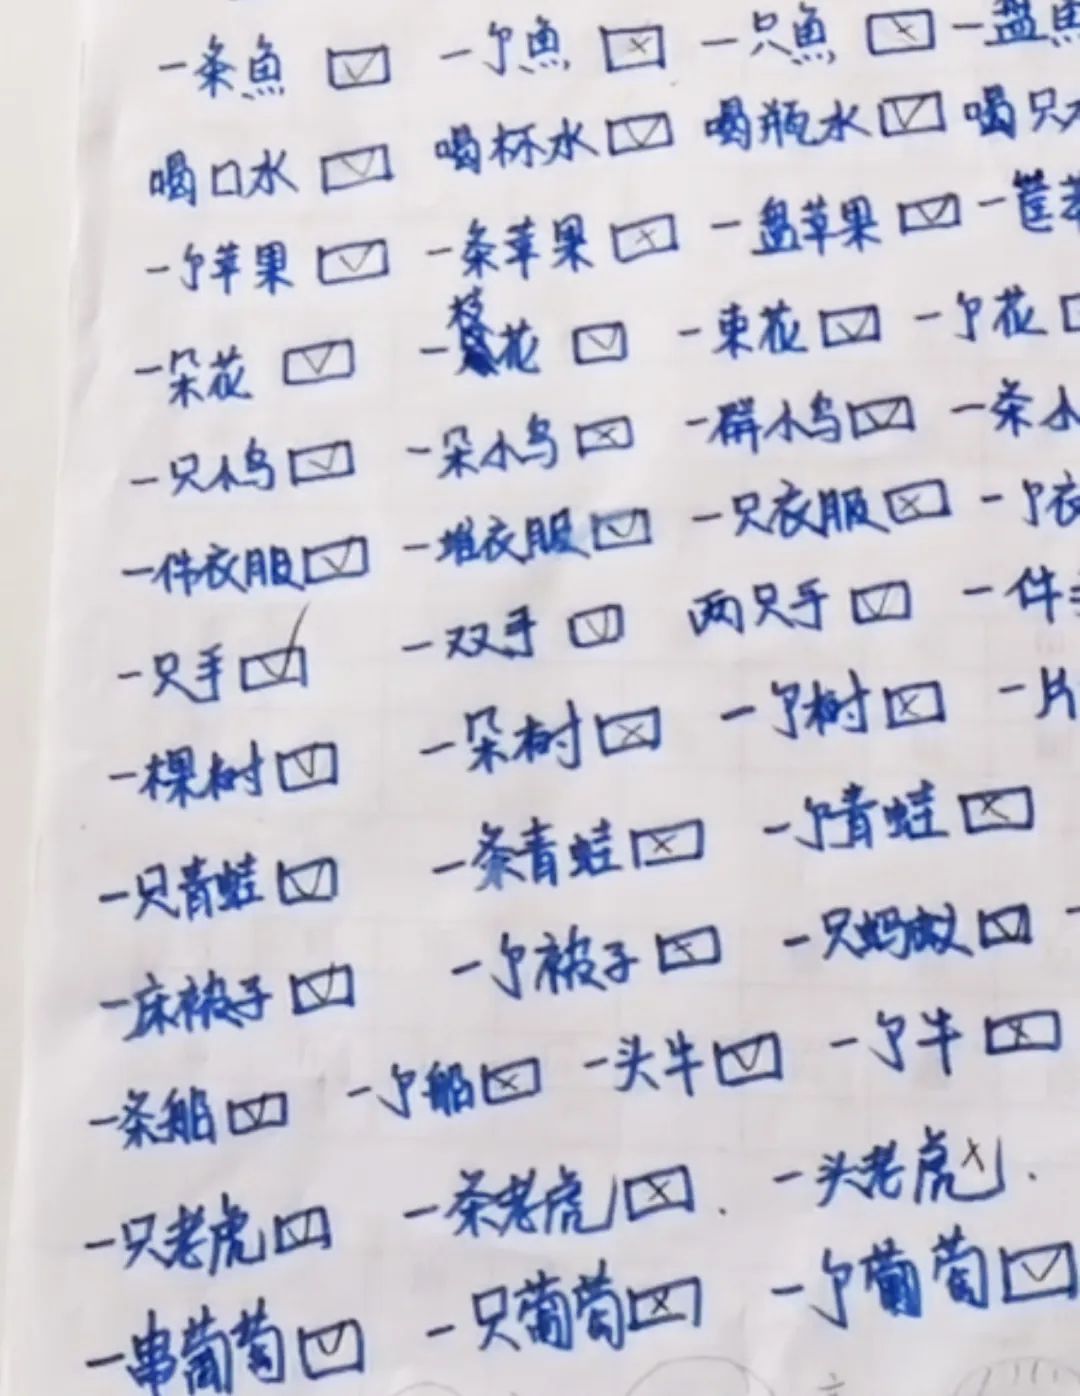 一条鱼 ☑ 一个鱼 ☒ 一只鱼 ☒ 一盘鱼
喝口水 ☑ 喝杯水 ☑ 喝瓶水 ☑ 喝只水
一个苹果 ☑ 一条苹果 ☒ 一盘苹果 ☑ 一筐苹
一朵花 ☑ 一枝花 ☑ 一束花 ☑ 一个花
一只小鸟 ☑ 一朵小鸟 ☒ 一群小鸟 ☑ 一条小
一件衣服 ☑ 一堆衣服 ☑ 一只衣服 ☒ 一个衣
一只手 ☑ 一双手 ☑ 两只手 ☑ 一件手
一棵树 ☑ 一朵树 ☒ 一个树 ☒ 一片
一只青蛙 ☑ 一条青蛙 ☒ 一个青蛙 ☒
一床被子 ☑ 一个被子 ☒ 一只蚂蚁 ☑ 一
一条船 ☑ 一个船 ☒ 一头牛 ☑ 一个牛 ☒
一只老虎 ☑ 一条老虎 ☒ 一头老虎 ☒
一串葡萄 ☑ 一只葡萄 ☒ 一个葡萄 ☑